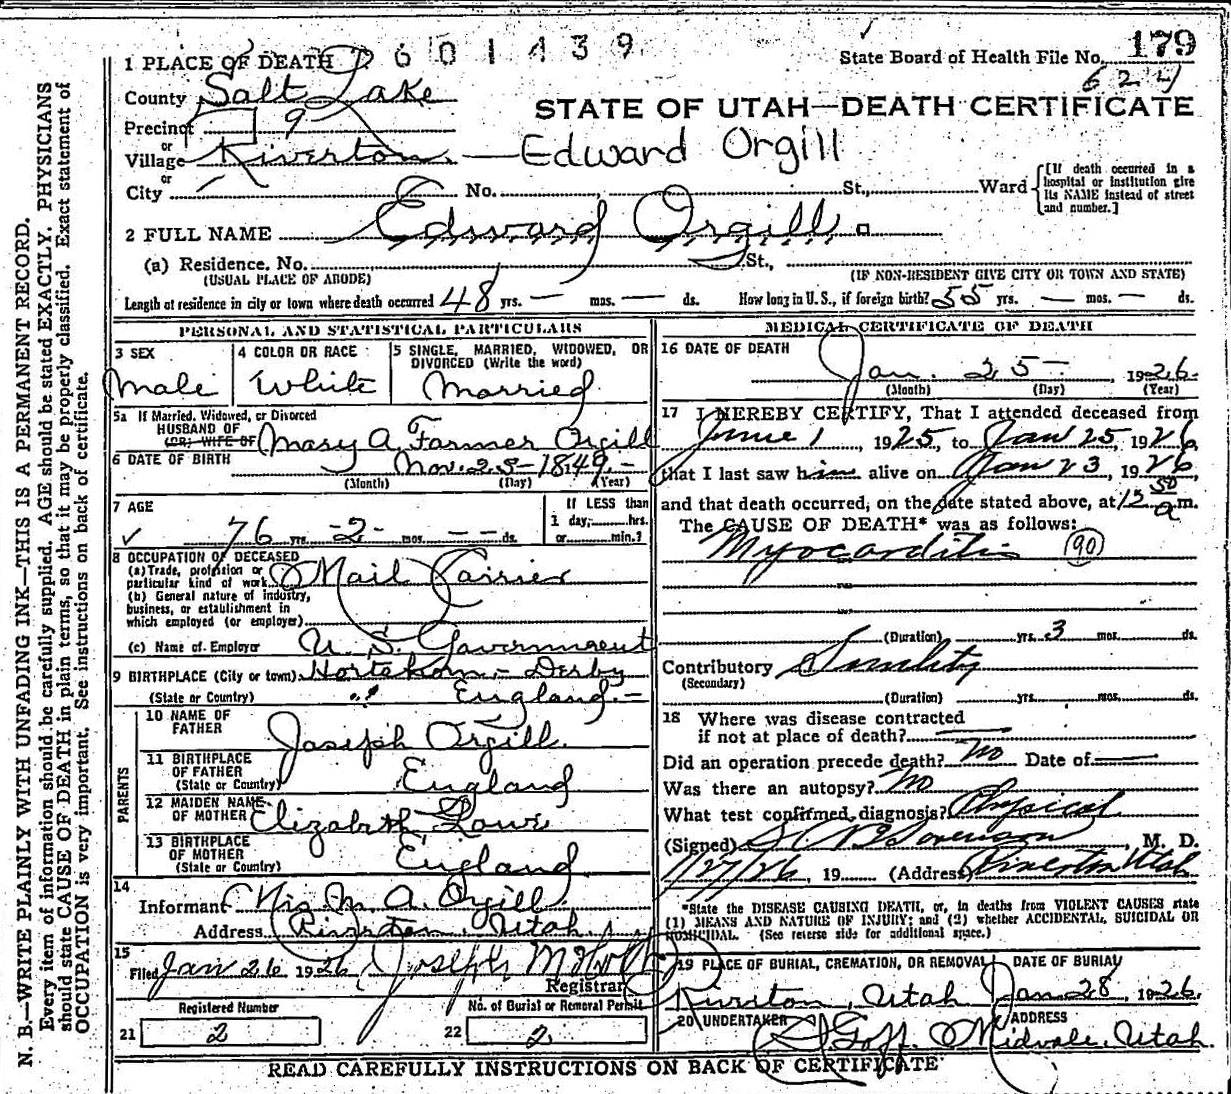 2601439
State Board of Health File No. 179
624
1 PLACE OF DEATH
County Salt Lake
STATE OF UTAH—DEATH CERTIFICATE
Precinct 9
or
Village Riverton — Edward Orgill
or
City No. St., Ward
[If death occurred in a hospital or institution give its NAME instead of street and number.]
2 FULL NAME Edward Orgill
(a) Residence. No. St.,
(USUAL PLACE OF ABODE) (IF NON-RESIDENT GIVE CITY OR TOWN AND STATE)
Length of residence in city or town where death occurred 48 yrs. — mos. — ds. How long in U.S., if foreign birth? 55 yrs. — mos. — ds.
PERSONAL AND STATISTICAL PARTICULARS
3 SEX
Male
4 COLOR OR RACE
White
5 SINGLE, MARRIED, WIDOWED, OR DIVORCED (Write the word)
Married
5a If Married, Widowed, or Divorced
HUSBAND OF
(OR) WIFE OF Mary A Farmer Orgill
6 DATE OF BIRTH Nov. 25-1849.-
(Month) (Day) (Year)
7 AGE
76 yrs. -2- mos. -- ds.
If LESS than
1 day, hrs.
or min.?
8 OCCUPATION OF DECEASED
(a) Trade, profession or
particular kind of work Mail Carrier
(b) General nature of industry,
business, or establishment in
which employed (or employer)
(c) Name of Employer U. S. Government
9 BIRTHPLACE (City or town) - Derby
(State or Country) England.-
PARENTS
10 NAME OF FATHER Joseph Orgill.
11 BIRTHPLACE OF FATHER
(State or Country) England
12 MAIDEN NAME OF MOTHER Elizabeth Lowe
13 BIRTHPLACE OF MOTHER
(State or Country) England
14
Informant Mrs M. A. Orgill.
Address Riverton, Utah.
15
Filed Jan 26 1926 Joseph
Registrar
Registered Number No. of Burial or Removal Permit
21 2 22 2
MEDICAL CERTIFICATE OF DEATH
16 DATE OF DEATH
Jan. 25- , 1926.
(Month) (Day) (Year)
17 I HEREBY CERTIFY, That I attended deceased from
June 1 , 1925, to Jan 25, 1926,
that I last saw him alive on Jan 23, 1926
and that death occurred, on the date stated above, at 12 50 a m.
The CAUSE OF DEATH* was as follows:
Myocarditis (90)
(Duration) yrs. 3 mos. ds.
Contributory Senility
(Secondary)
(Duration) yrs. mos. ds.
18 Where was disease contracted
if not at place of death?
Did an operation precede death? No Date of
Was there an autopsy? No
What test confirmed diagnosis? Physical
(Signed) Sorenson, M. D.
1/27/26, 19 (Address) Riverton Utah
*State the DISEASE CAUSING DEATH, or, in deaths from VIOLENT CAUSES state
(1) MEANS AND NATURE OF INJURY; and (2) whether ACCIDENTAL, SUICIDAL OR
HOMICIDAL. (See reverse side for additional space.)
19 PLACE OF BURIAL, CREMATION, OR REMOVAL DATE OF BURIAL
Riverton, Utah Jan 28, 1926.
20 UNDERTAKER ADDRESS
Goff. Midvale, Utah.
READ CAREFULLY INSTRUCTIONS ON BACK OF CERTIFICATE
N. B.—WRITE PLAINLY WITH UNFADING INK—THIS IS A PERMANENT RECORD.
Every item of information should be carefully supplied. AGE should be stated EXACTLY. PHYSICIANS
should state CAUSE OF DEATH in plain terms, so that it may be properly classified. Exact statement of
OCCUPATION is very important. See instructions on back of certificate.